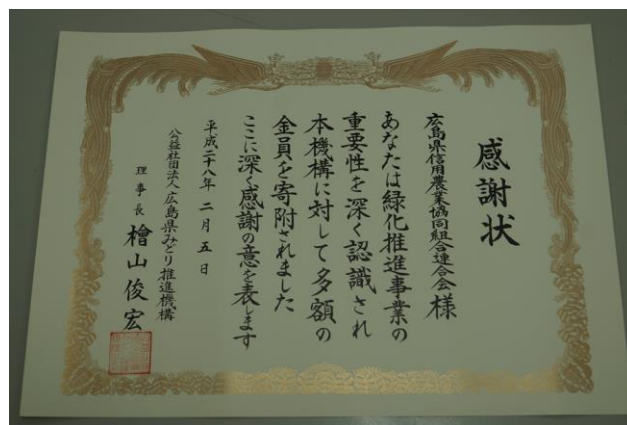 感謝状
広島県信用農業協同組合連合会様
あなたは緑化推進事業の
重要性を深く認識され
本機構に対して多額の
金員を寄附されました
ここに深く感謝の意を表します
平成二十八年二月五日
公益社団法人広島県みどり推進機構
理事長 檜山俊宏